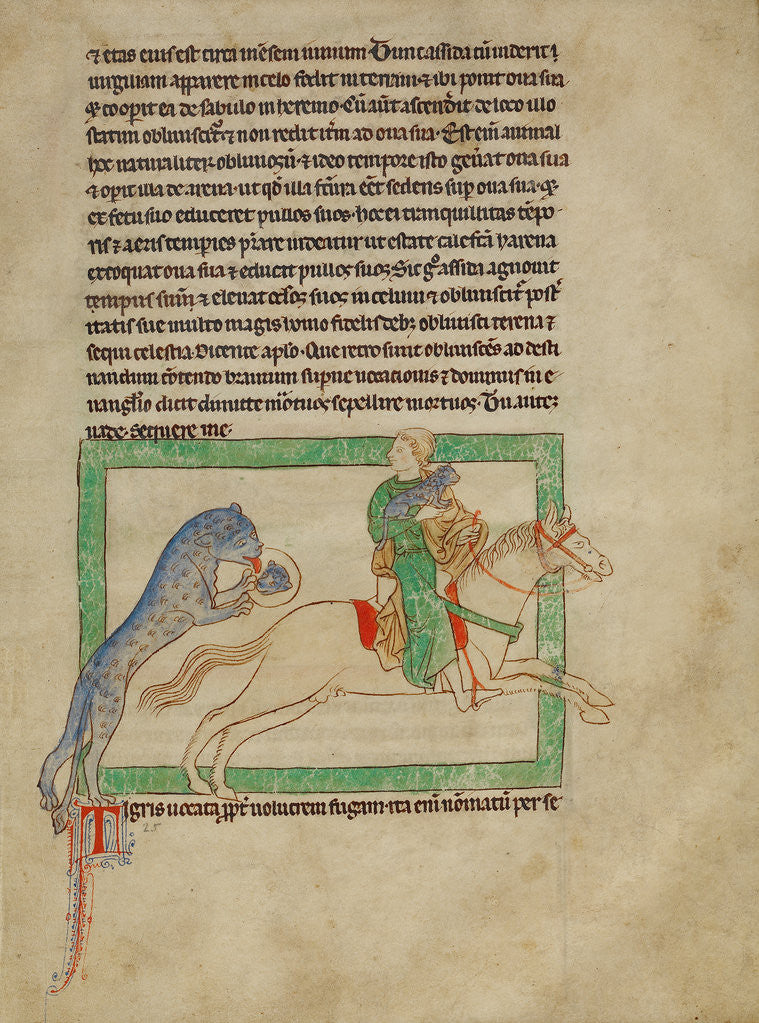 ⁊ etas eius est circa mēsem iunium Tunc assida cū uiderit ī
uirgiliam apparere in celo fodit in terram ⁊ ibi ponit oua sua
⁊ cooperit ea de sabulo in heremo. Cū aūt ascendit de loco illo
statim obliuiscit᷑ ⁊ non redit itm̄ ad oua sua. Est enī animal
hoc naturaliter obliuiosū ⁊ ideo tempore isto gen̄at oua sua
⁊ operit illa de arena ut qd̄ illa sedens sup oua sua
ex fetu suo educeret pullos suos. hoc ei tranquillitas tēpo
ris ⁊ aeris temperies p̄stare uidentur ut estate harena
excoquat oua sua ⁊ educat pullos suos. Sic gͦ assida agnouit
tempus suum ⁊ eleuat oculos suos in celum ⁊ obliuiscit᷑ post̄
itatis sue multo magis homo fidelis debet obliuisci terena ⁊
sequi celestia. Dicente aplo. Que retro sunt obliuiscēs ad desti
nandum cōtendo brauium superne uocationis ⁊ dominus in e
uanglio dicit dimitte mortuos sepellire mortuos. Tu autē
uade. sequere me.
Tigris uocata ppt̄ uolucrem fugam. ita enī nōinatū per se
25